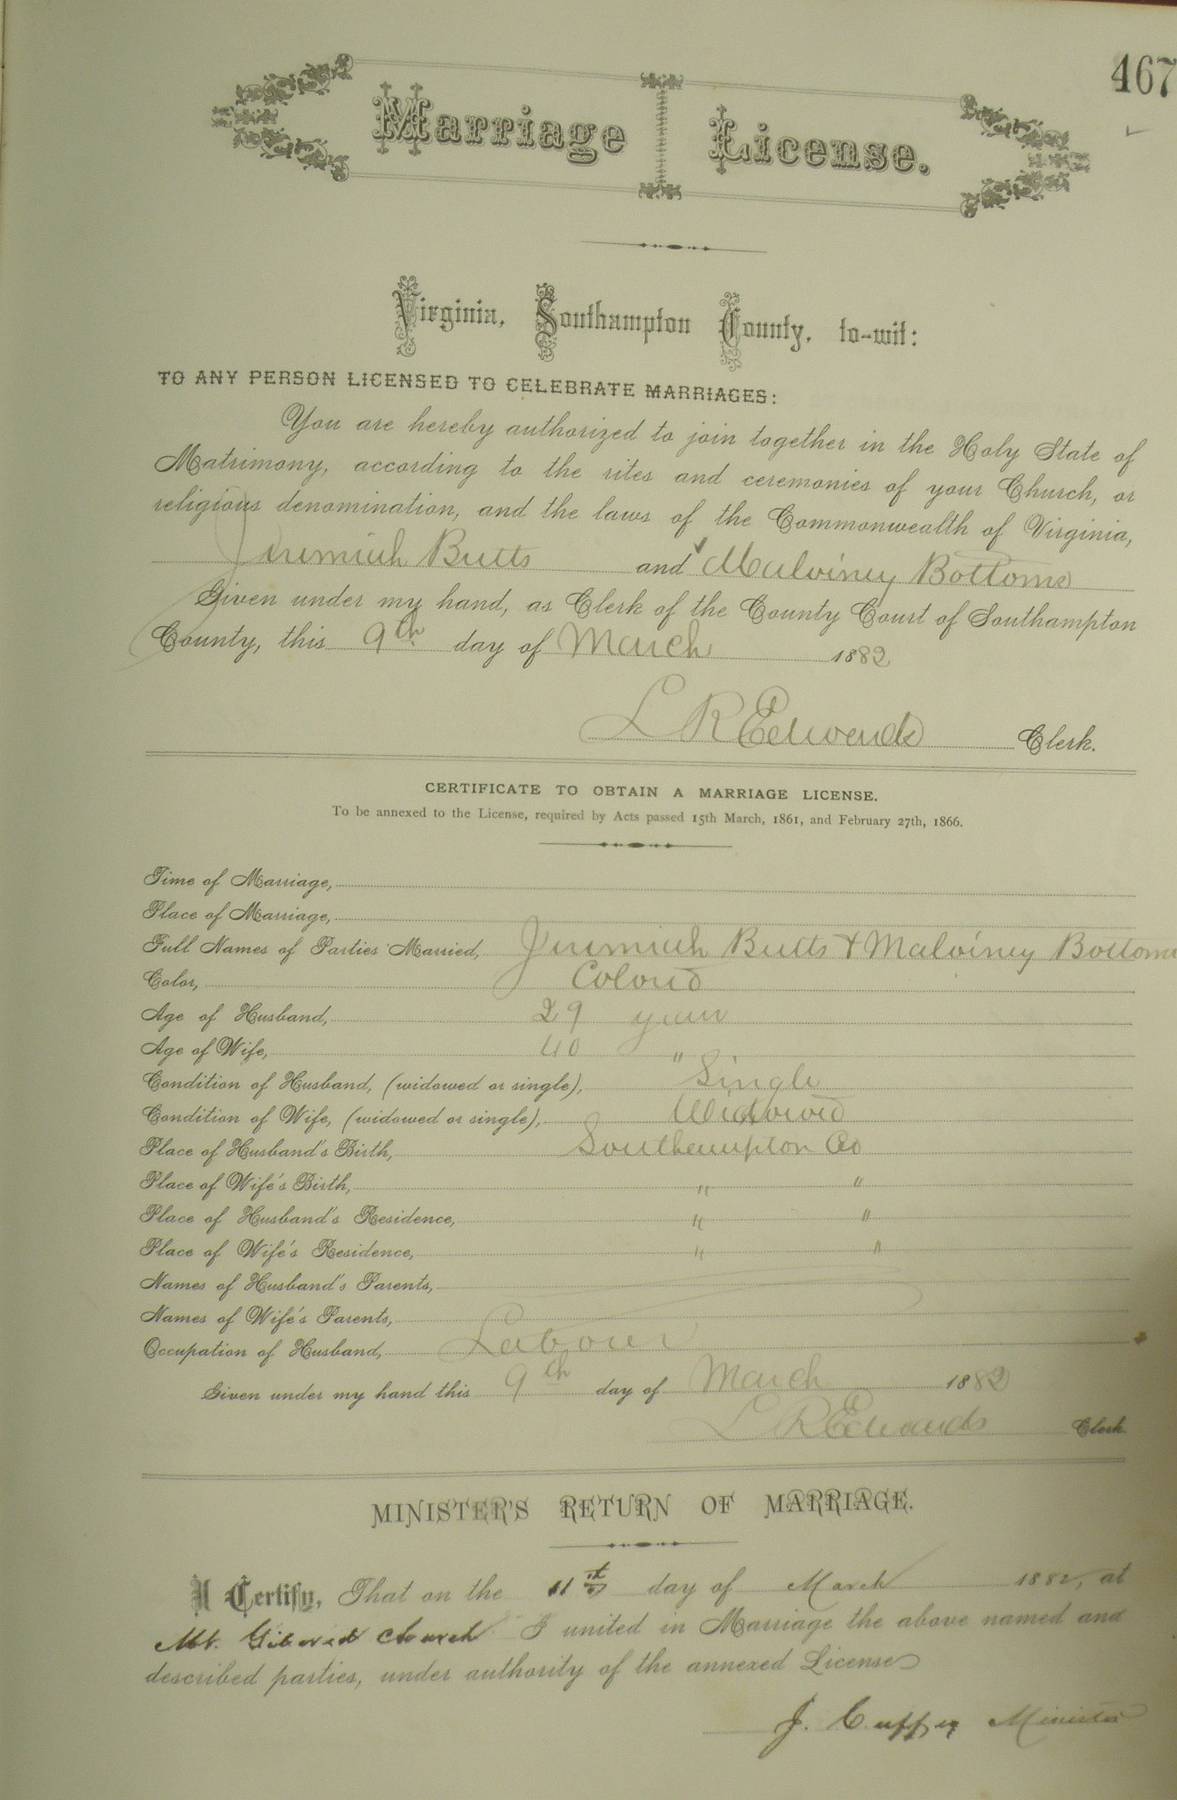 467
Marriage License.
Virginia, Southampton County, to-wit:
TO ANY PERSON LICENSED TO CELEBRATE MARRIAGES:
You are hereby authorized to join together in the Holy State of
Matrimony, according to the rites and ceremonies of your Church, or
religious denomination, and the laws of the Commonwealth of Virginia,
Jeremiah Butts and Malviney Bottoms
Given under my hand, as Clerk of the County Court of Southampton
County, this 9th day of March 1882
L R Edwards Clerk.
CERTIFICATE TO OBTAIN A MARRIAGE LICENSE.
To be annexed to the License, required by Acts passed 15th March, 1861, and February 27th, 1866.
Time of Marriage,
Place of Marriage,
Full Names of Parties Married, Jeremiah Butts & Malviney Bottoms
Color, Colored
Age of Husband, 29 years
Age of Wife, 40 "
Condition of Husband, (widowed or single), Single
Condition of Wife, (widowed or single), Widowed
Place of Husband's Birth, Southampton Co
Place of Wife's Birth, " "
Place of Husband's Residence, " "
Place of Wife's Residence, " "
Names of Husband's Parents,
Names of Wife's Parents,
Occupation of Husband, Laborer
Given under my hand this 9th day of March 1882
L R Edwards Clerk
MINISTER'S RETURN OF MARRIAGE.
I Certify, That on the 11 day of March 1882, at
Mt. church I united in Marriage the above named and
described parties, under authority of the annexed License
J. Cuffey Minister